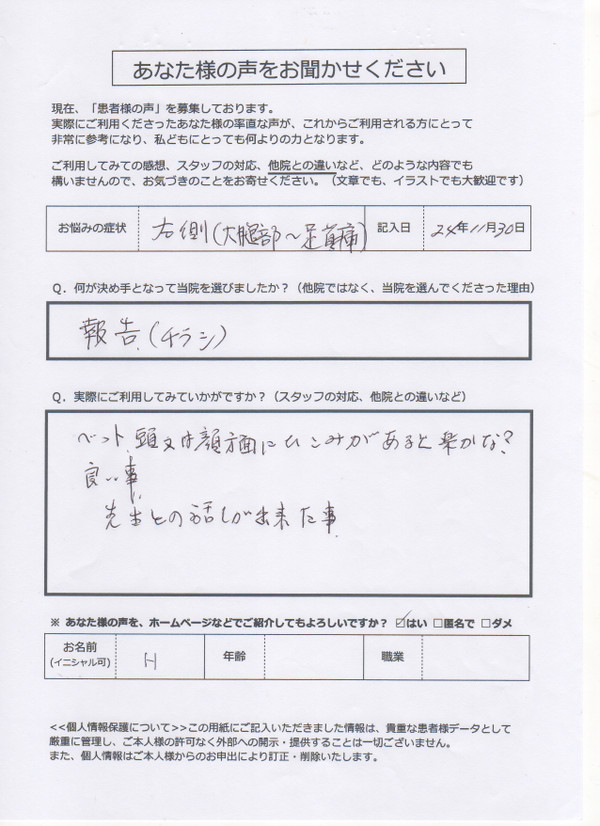 あなた様の声をお聞かせください
現在、「患者様の声」を募集しております。
実際にご利用くださったあなた様の率直な声が、これからご利用される方にとって
非常に参考になり、私どもにとっても何よりの力となります。
ご利用してみての感想、スタッフの対応、他院との違いなど、どのような内容でも
構いませんので、お気づきのことをお寄せください。（文章でも、イラストでも大歓迎です）
お悩みの症状 右側(大腿部〜足首痛) 記入日 24年11月30日
Q．何が決め手となって当院を選びましたか？（他院ではなく、当院を選んでくださった理由）
報告.(チラシ)
Q．実際にご利用してみていかがですか？（スタッフの対応、他院との違いなど）
ベット.頭又は顔方面にひこみがあると楽かな?
良い事
先生との話しが出来た事.
※ あなた様の声を、ホームページなどでご紹介してもよろしいですか？ ☑はい □匿名で □ダメ
お名前 H 年齢 職業
(イニシャル可)
<<個人情報保護について>>この用紙にご記入いただきました情報は、貴重な患者様データとして
厳重に管理し、ご本人様の許可なく外部への開示・提供することは一切ございません。
また、個人情報はご本人様からのお申出により訂正・削除いたします。